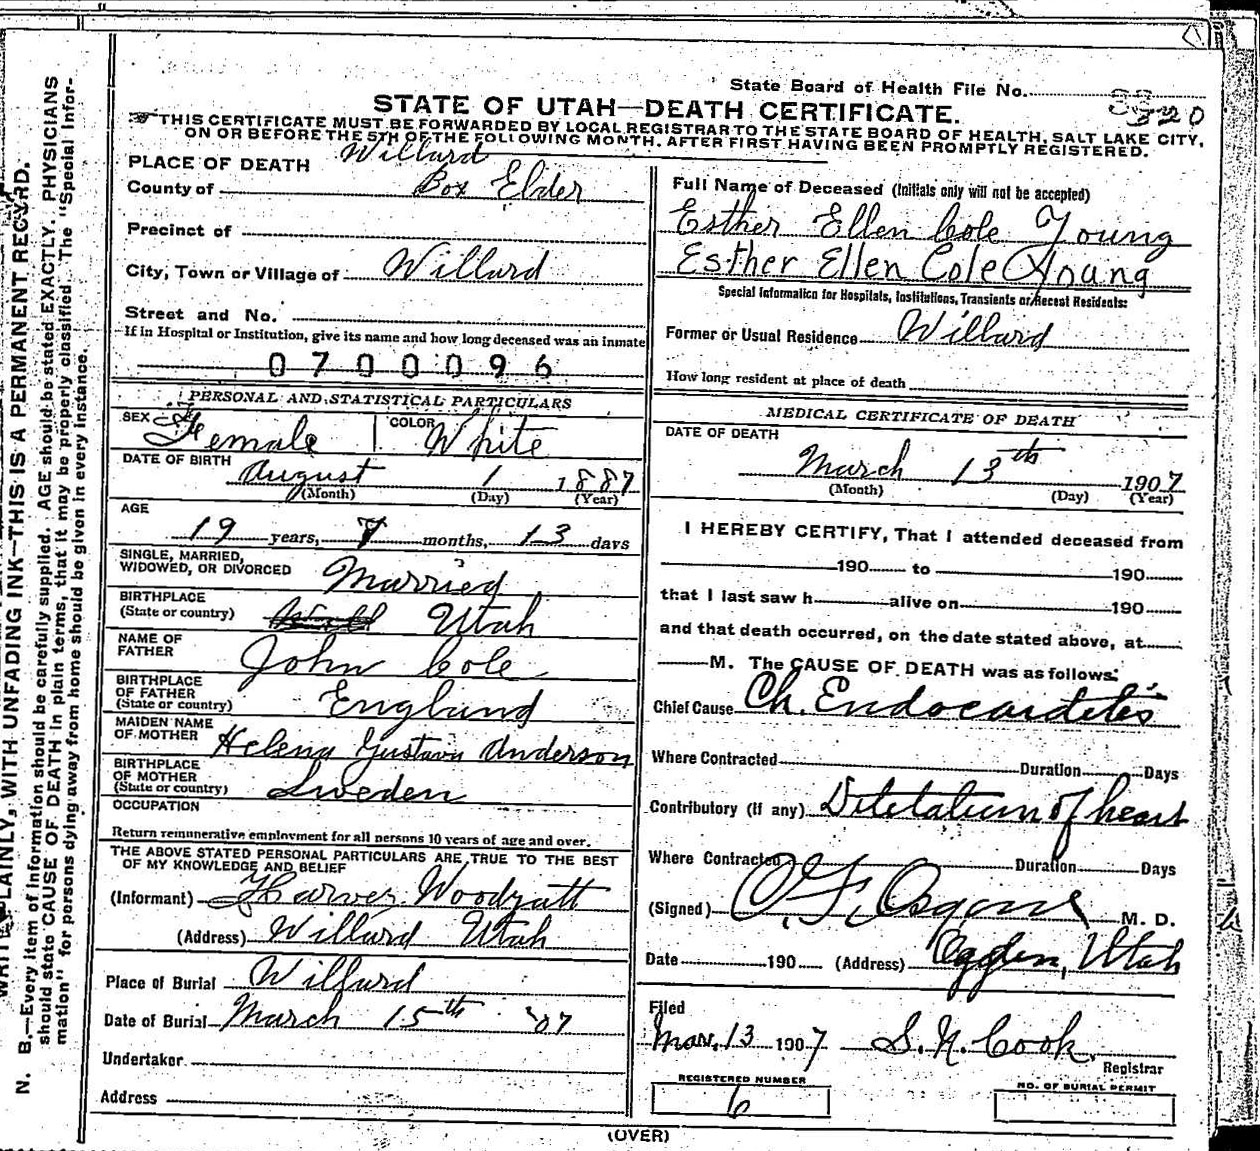 State Board of Health File No.
STATE OF UTAH—DEATH CERTIFICATE.
THIS CERTIFICATE MUST BE FORWARDED BY LOCAL REGISTRAR TO THE STATE BOARD OF HEALTH, SALT LAKE CITY,
ON OR BEFORE THE 5TH OF THE FOLLOWING MONTH, AFTER FIRST HAVING BEEN PROMPTLY REGISTERED.
PLACE OF DEATH Willard
County of Box Elder
Precinct of
City, Town or Village of Willard
Street and No.
If in Hospital or Institution, give its name and how long deceased was an inmate
0700096
PERSONAL AND STATISTICAL PARTICULARS
SEX Female COLOR White
DATE OF BIRTH August 1 1887
(Month) (Day) (Year)
AGE
19 years, 7 months, 13 days
SINGLE, MARRIED,
WIDOWED, OR DIVORCED Married
BIRTHPLACE
(State or country) Utah
NAME OF
FATHER John Cole
BIRTHPLACE
OF FATHER
(State or country) England
MAIDEN NAME
OF MOTHER Helena Gustava Anderson
BIRTHPLACE
OF MOTHER
(State or country) Sweden
OCCUPATION
Return remunerative employment for all persons 10 years of age and over.
THE ABOVE STATED PERSONAL PARTICULARS ARE TRUE TO THE BEST
OF MY KNOWLEDGE AND BELIEF
(Informant) Harver Woodyatt
(Address) Willard Utah
Place of Burial Willard
Date of Burial March 15th '07
Undertaker
Address
Full Name of Deceased (Initials only will not be accepted)
Esther Ellen Cole Young
Esther Ellen Cole Young
Special Information for Hospitals, Institutions, Transients or Recent Residents:
Former or Usual Residence Willard
How long resident at place of death
MEDICAL CERTIFICATE OF DEATH
DATE OF DEATH
March 13th 1907
(Month) (Day) (Year)
I HEREBY CERTIFY, That I attended deceased from
190 to 190
that I last saw h alive on 190
and that death occurred, on the date stated above, at
M. The CAUSE OF DEATH was as follows:
Chief Cause Ch. Endocarditis
Where Contracted Duration Days
Contributory (if any) Diletatium of heart
Where Contracted Duration Days
(Signed) M. D.
Date 190 (Address) Ogden, Utah
Filed
Mar. 13 1907 S. N. Cook
Registrar
REGISTERED NUMBER
6
NO. OF BURIAL PERMIT
(OVER)
N. B.—Every item of information should be carefully supplied. AGE should be stated EXACTLY. PHYSICIANS
should state CAUSE OF DEATH in plain terms, that it may be properly classified. The "Special Infor-
mation" for persons dying away from home should be given in every instance.
PLAINLY, WITH UNFADING INK—THIS IS A PERMANENT RECORD.